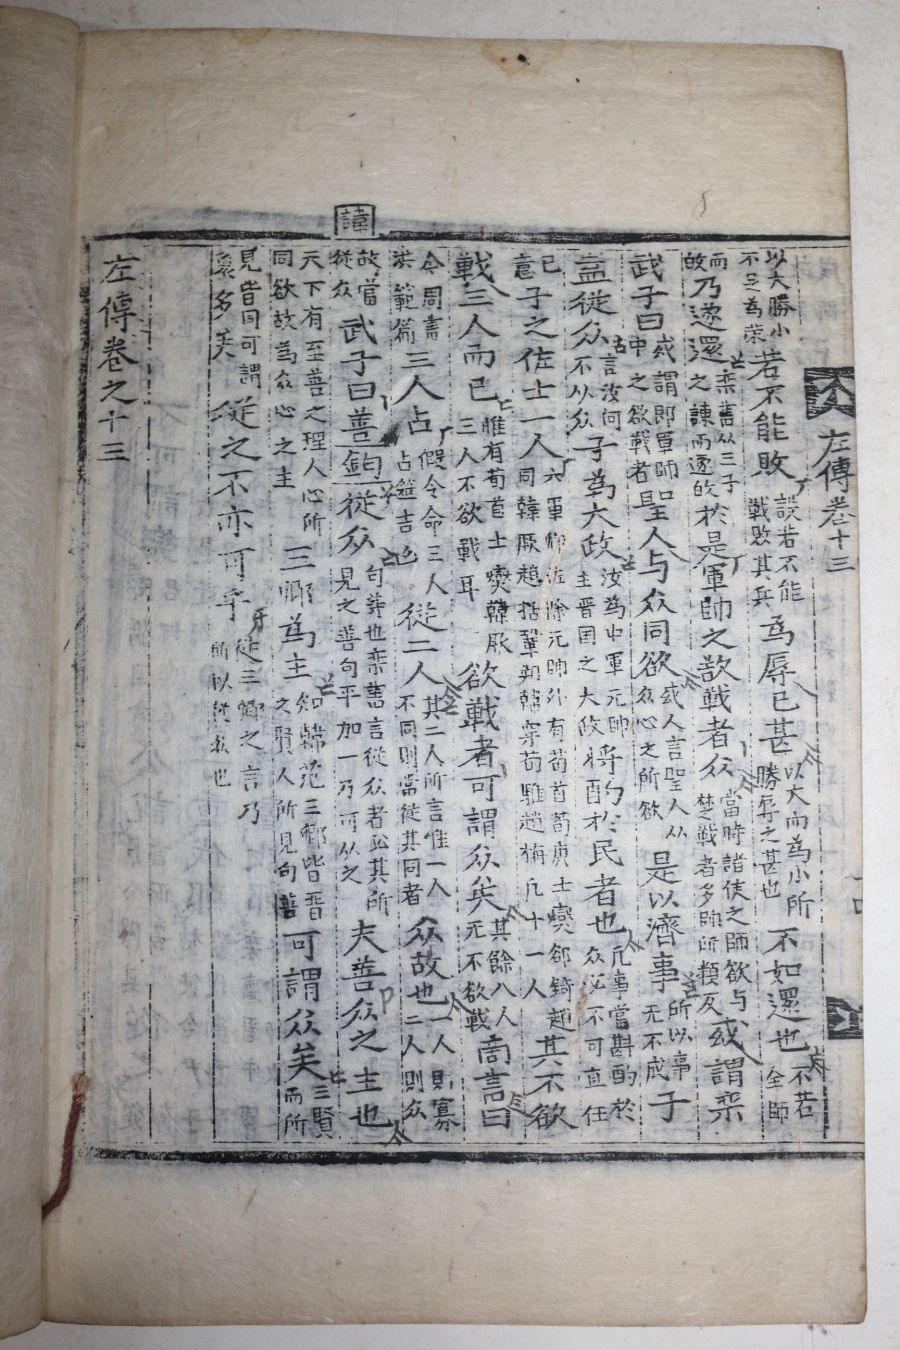 諱
左傳卷十三
以大勝小不足為榮若不能敗設若不能戰敗其兵為辱已甚以大而為小所勝辱之甚也不如還也不若全師
而故乃遂還欒書从三子之諫而遂於是軍帥之欲戰者众當時諸侯之師欲与楚戰者多帥所類反或謂欒
武子曰或謂即軍帥中之欲戰者聖人与众同欲或人言聖人从众心之所欲是以濟事所以事无不成子
盍從众言汝何不从众子為大政汝為中軍元帥主晋国之大政将酌於民者也凢事當斟酌於众必不可直任
己意子之佐十一人六軍卿佐除元帥外有荀首荀庚士爕郤錡趙同韓厥趙括鞏朔韓穿荀騅趙旃凢十一人其不欲
戰三人而已惟有荀首士爕韓厥三人不欲戰耳欲戰者可謂众矣其餘八人无不欲戰商書曰
今周書洪範篇三人占假令命三人占筮吉凶從二人其二人所言惟一人不同則當從其同者众故也一人則寡二人則众
故當從众武子曰善鈞從众句等也欒書言從众者必其所見之善句平加一乃可从之夫善众之主也
天下有至善之理人心所同欲故為众心之主三卿為主知韓范三卿皆晋之賢人所見句善可謂众矣三賢而所
見皆同可謂衆多矣從之不亦可乎從三卿之言乃所以從众也
左傳卷之十三